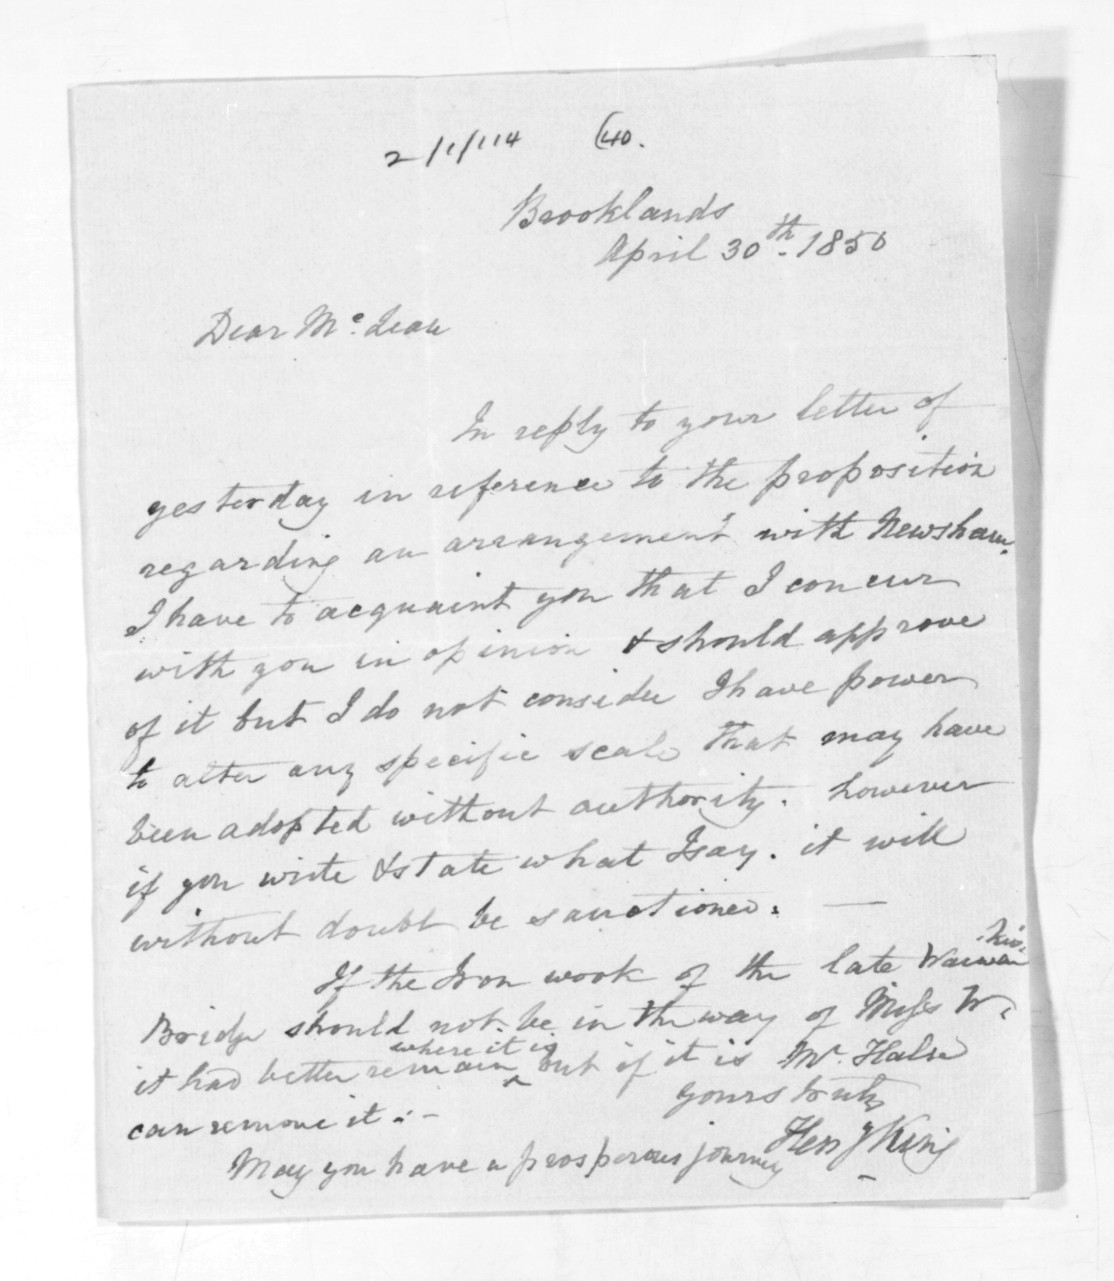 2/1/114 (40.
Brooklands
April 30th. 1850
Dear Mc. Lean
In reply to your letter of
yesterday in reference to the proposition
regarding an arrangement with Newsham.
I have to acquaint you that I concur
with you in opinion & should approve
of it but I do not consider I have power
to alter any specific scale that may have
been adopted without authority. however
if you write & state what I say. it will
without doubt be sanctioned. —
If the Iron work of the late
Bridge should not be in the way of Miss W
it had better remain where it is but if it is Mr. Halse
can remove it. –
yours truly
Hen y King
May you have a prosperous journey